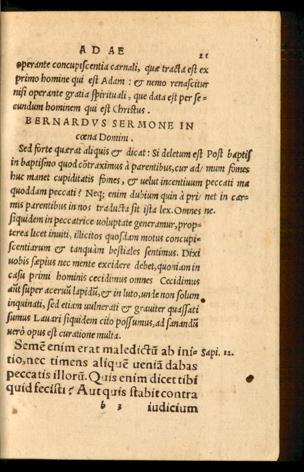 AD AE
21
operante concupiscentia carnali, quæ tracta est ex
primo homine qui est Adam: & nemo renascitur
nisi operante gratia spirituali, que data est per se-
cundum hominem qui est Christus.
BERNARDVS SERMONE IN
cœna Domini.
Sed forte quærat aliquis & dicat: Si deletum est Post baptis
in baptismo quod cōtraximus à parentibus, cur ad/ mum fomes
huc manet cupiditatis fomes, & uelut incentiuum peccati ma
quoddam peccati? Neq; enim dubium quin à pri/ net in car-
mis parentibus in nos traducta sit ista lex. Omnes ne.
siquidem in peccatrice uoluptate generamur, prop-
terea licet inuiti, illicitos quosdam motus concupi-
scentiarum & tanquàm bestiales sentimus. Dixi
uobis sæpius nec mente excidere debet, quoniam in
casu primi hominis cecidimus omnes Cecidimus
aūt super aceruū lapidū, & in luto, unde non solum
inquinati, sed etiam uulnerati & grauiter quassati
sumus Lauari siquidem cito possumus, ad sanandū
uerò opus est curatione multa.
Semē enim erat maledictū ab ini- Sapi. 12.
tio, nec timens aliquē ueniā dabas
peccatis illorū. Quis enim dicet tibi
quid fecisti? Aut quis stabit contra
b 3 iudicium